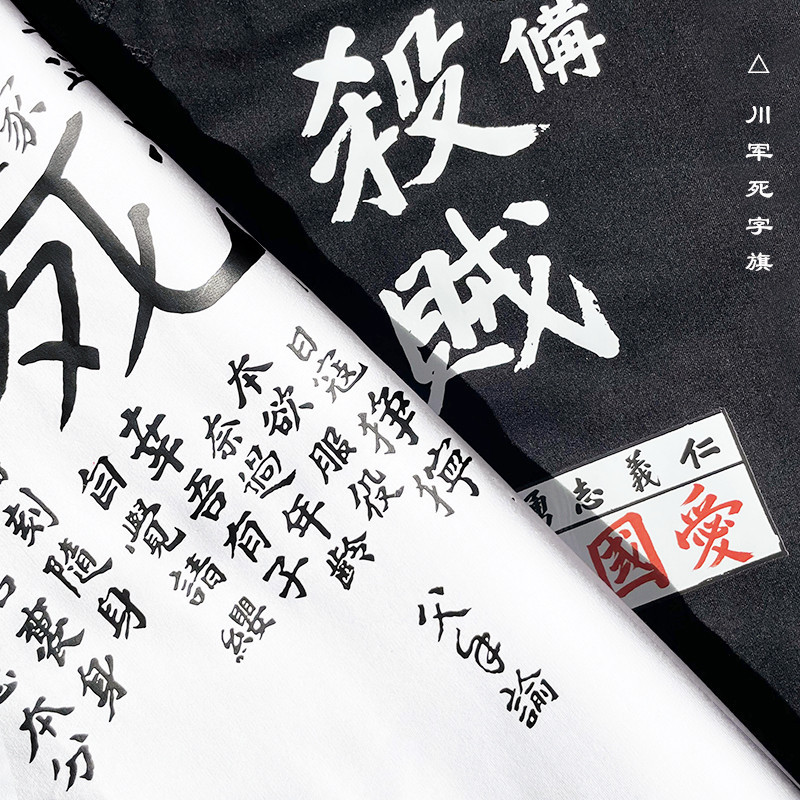 △川军死字旗
備
殺賊
仁義志勇
愛國
家
死
日寇猙獰
本欲服役
奈過年齡
幸吾有子
自覺請纓
刻隨身
裹身
本分
父手諭